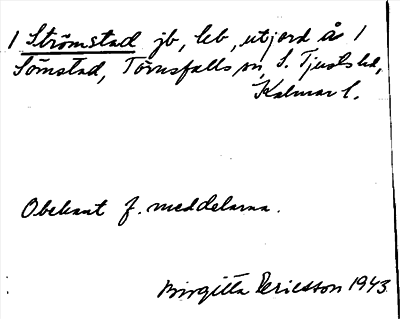 1 Strömstad jb, lcb, utjord å 1
Sömstad, Törnsfalls sn, S. Tjusts hd,
Kalmar l.
Obekant f. meddelarna.
Birgitta Ericsson 1943